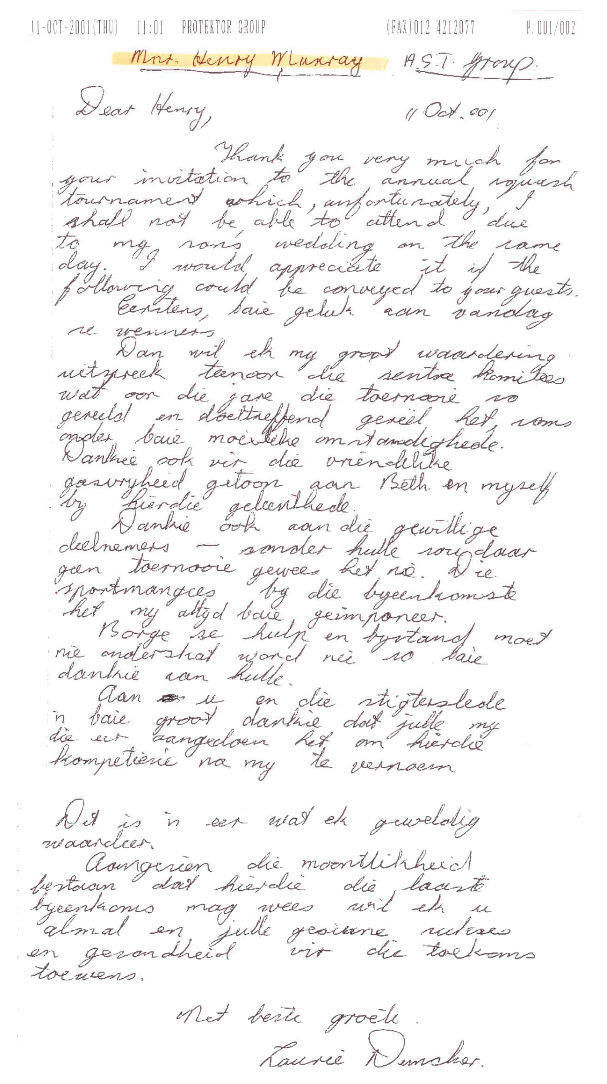 11-OCT-2001(THU) 11:01 PROTEKTOR GROUP (FAX)012 4212077 P.001/002
Mnr. Henry Murray A.S.T. Group.
Dear Henry, 11 Oct. 001
Thank you very much for
your invitation to the annual squash
tournament which, unfortunately, I
shall not be able to attend due
to my sons wedding on the same
day. I would appreciate it if the
following could be conveyed to your guests.
Eerstens, baie geluk aan vandag
se wenners
Dan wil ek my groot waardering
uitspreek teenoor die sentrale komitees
wat oor die jare die toernooie so
gereeld en doeltreffend gereël het, soms
onder baie moeilike omstandighede.
Dankie ook vir die vriendelike
gasvryheid getoon aan Beth en myself
by hierdie geleenthede.
Dankie ook aan die gewillige
deelnemers – sonder hulle sou daar
geen toernooie gewees het nie. Die
sportmangees by die byeenkomste
het my altyd baie geïmponeer.
Borge se hulp en bystand moet
nie onderskat word nie so baie
dankie aan hulle.
Aan u en die stigterslede
'n baie groot dankie dat julle my
die eer aangedoen het om hierdie
kompetisie na my te vernoem
Dit is 'n eer wat ek geweldig
waardeer.
Aangesien die moontlikheid
bestaan dat hierdie die laaste
byeenkoms mag wees wil ek u
almal en julle gesinne sukses
en gesondheid vir die toekoms
toewens.
Met beste groete.
Laurie